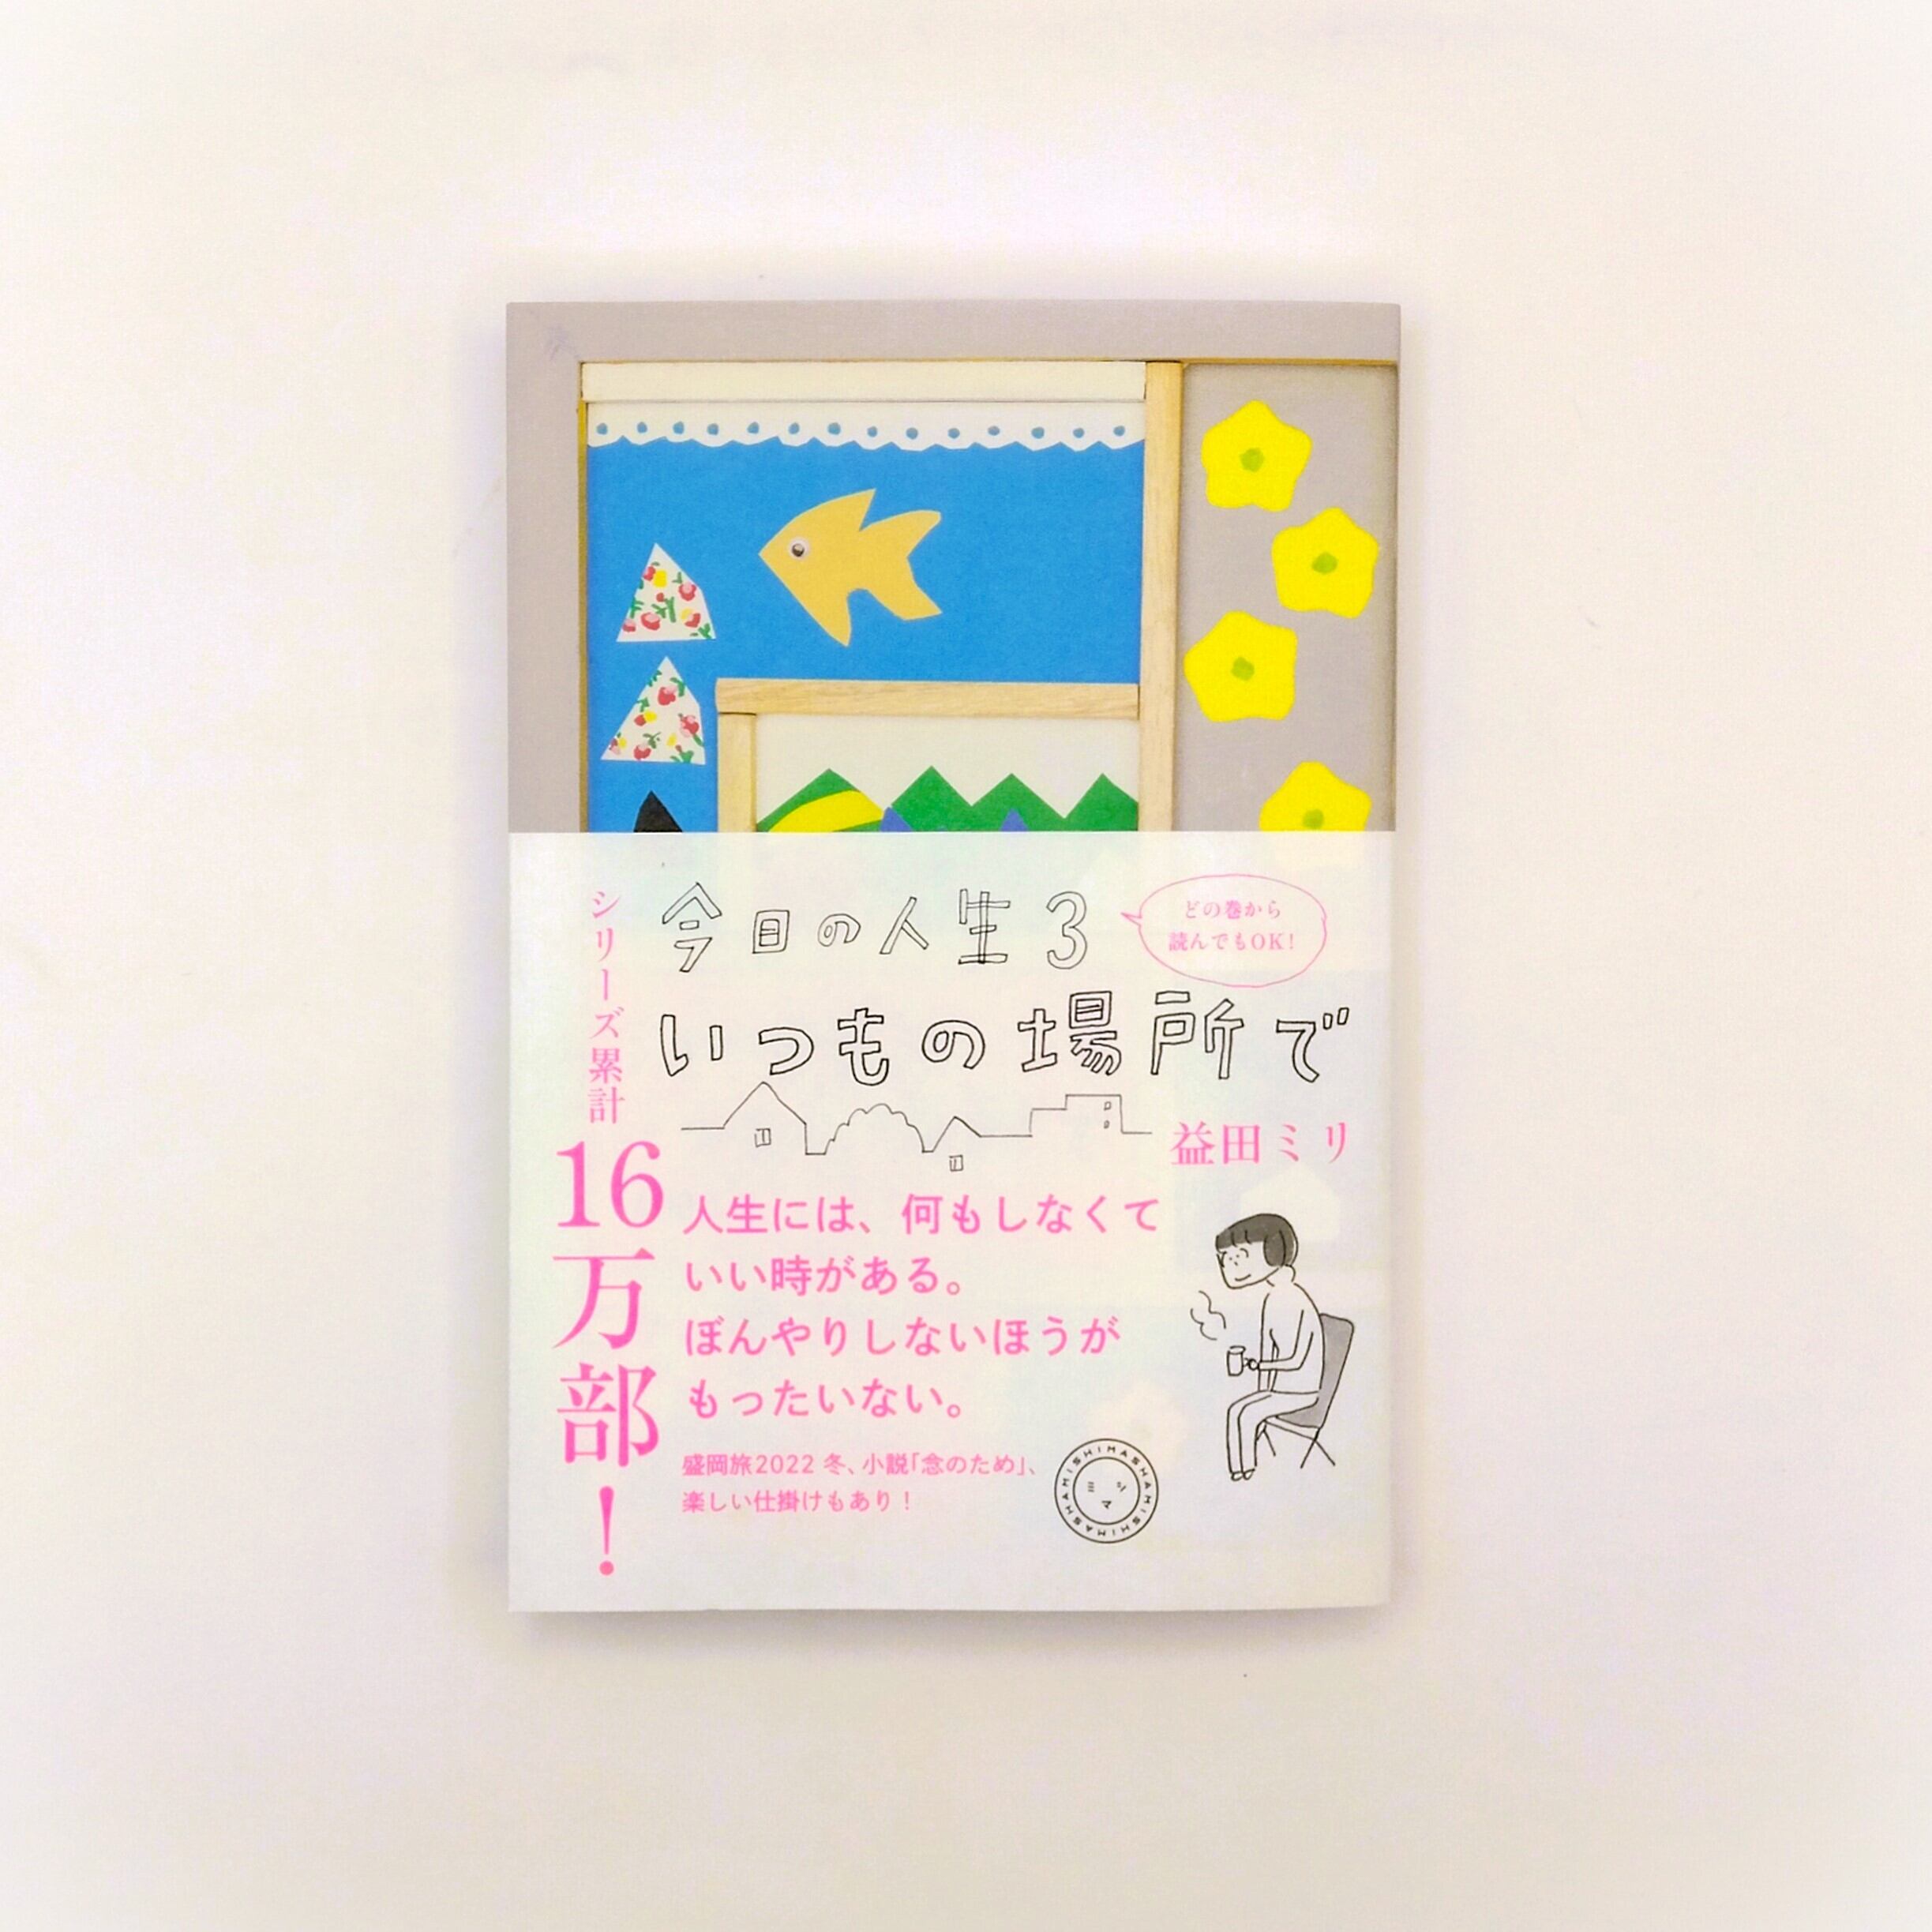 今日の人生3
いつもの場所で
どの巻から
読んでもOK!
益田ミリ
シリーズ累計
16万部!
人生には、何もしなくて
いい時がある。
ぼんやりしないほうが
もったいない。
盛岡旅2022 冬、小説「念のため」、
楽しい仕掛けもあり!
MISHIMASHAMISHIMASHAMISHIMASHA
ミシマ